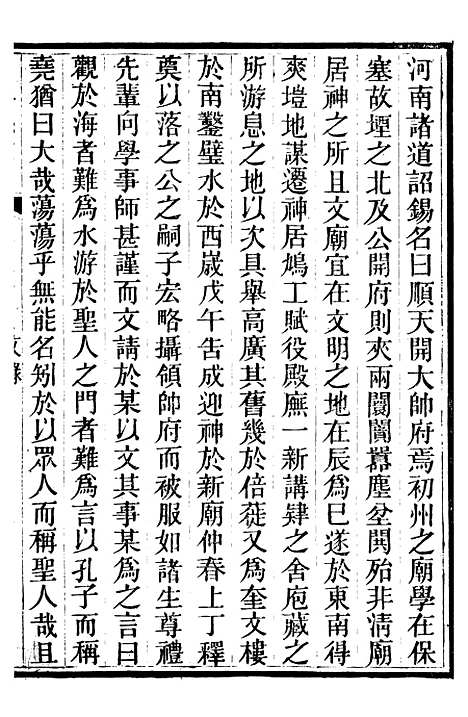 河南諸道詔錫名曰順天開大帥府焉初州之廟學在保
塞故堙之北及公開府則夾兩闤闠囂塵坌閧殆非清廟
居神之所且文廟宜在文明之地在辰為巳遂於東南得
爽塏地謀遷神居鳩工賦役殿廡一新講肄之舍庖藏之
所游息之地以次具舉高廣其舊幾於倍蓰又為奎文樓
於南鑿璧水於西歲戊午告成迎神於新廟仲春上丁釋
奠以落之公之嗣子宏略攝領帥府而被服如諸生尊禮
先輩向學事師甚謹而文請於某以文其事某為之言曰
觀於海者難為水游於聖人之門者難為言以孔子而稱
堯猶曰大哉蕩蕩乎無能名矧於以眾人而稱聖人哉且